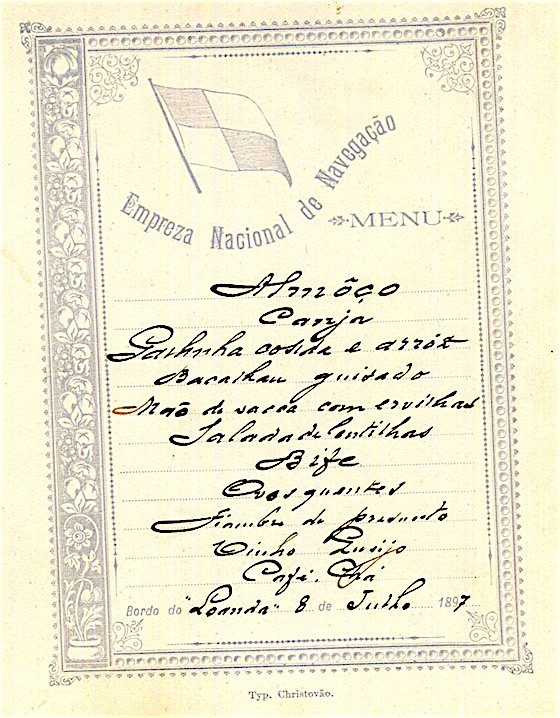 Empreza Nacional de Navegação
MENU
Almôço
Canja
Gallinha cosida e arròz
Bacalhau guisado
Mão de vacca com ervilhas
Salada de lentilhas
Bife
Ovos quentes
Fiambre de presunto
Vinho Queijo
Café. Chá
Bordo do "Loanda" 8 de Julho 1897
Typ. Christovão.